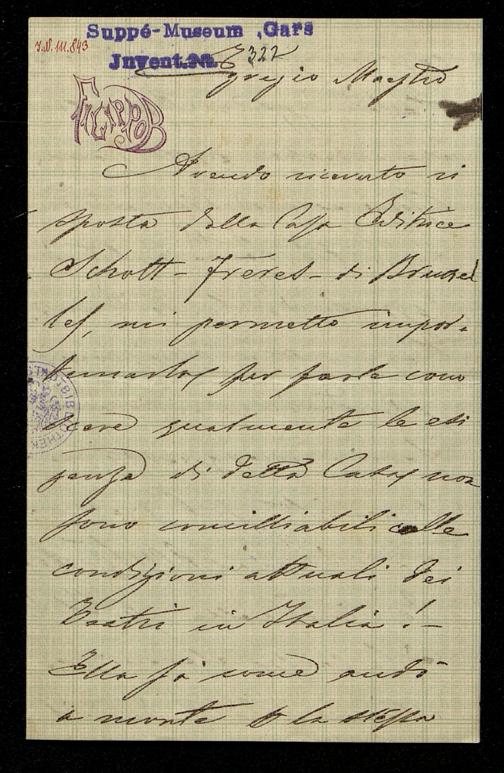 I.N. 111.843
Suppé-Museum, Gars
Jnvent.No. 322
Egregio Maestro
FILIPPO B
Avendo ricevuto ri
sposta dalla Casa Editrice
Schott-Frères-di Bruxel
les, mi permetto impor-
tunarla per farle cono
scere qualmente le esi
genze di detta Casa non
sono concilliabili colle
condizioni attuali dei
Teatri in Italia!-
Ella sa come andò
a monte la stessa